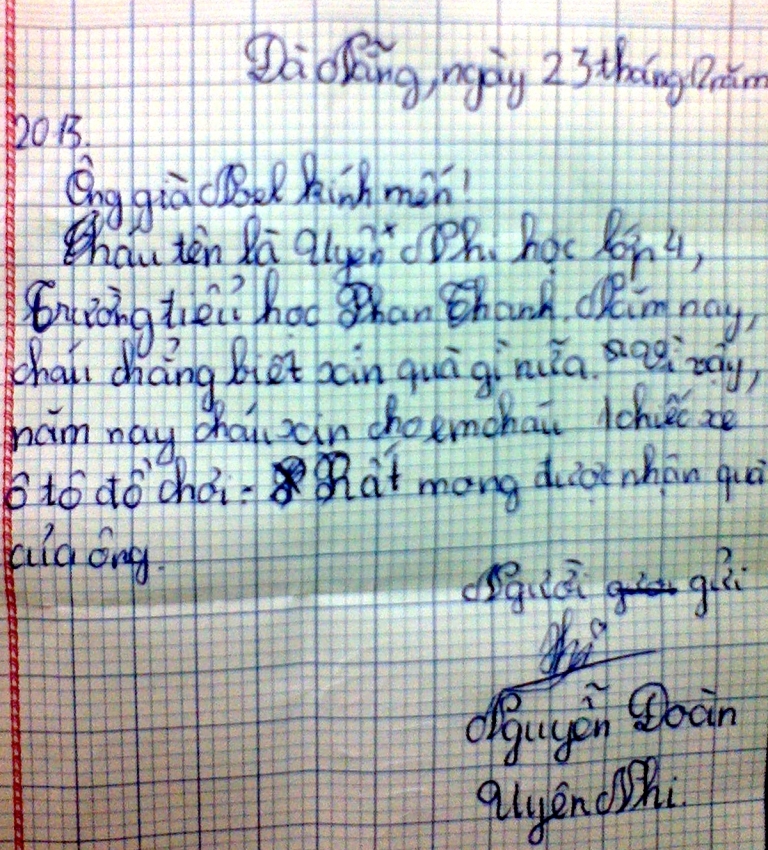 Đà Nẵng, ngày 23 tháng 12 năm
2013.
Ông già Noel kính mến!
Cháu tên là Uyên Nhi học lớp 4,
Trường tiểu học Phan Thanh. Năm nay,
cháu chẳng biết xin quà gì nữa. vậy,
năm nay cháu xin cho em cháu 1 chiếc xe
ô tô đồ chơi. Rất mong được nhận quà
của ông.
Người gửi
Nhi
Nguyễn Đoàn
Uyên Nhi.